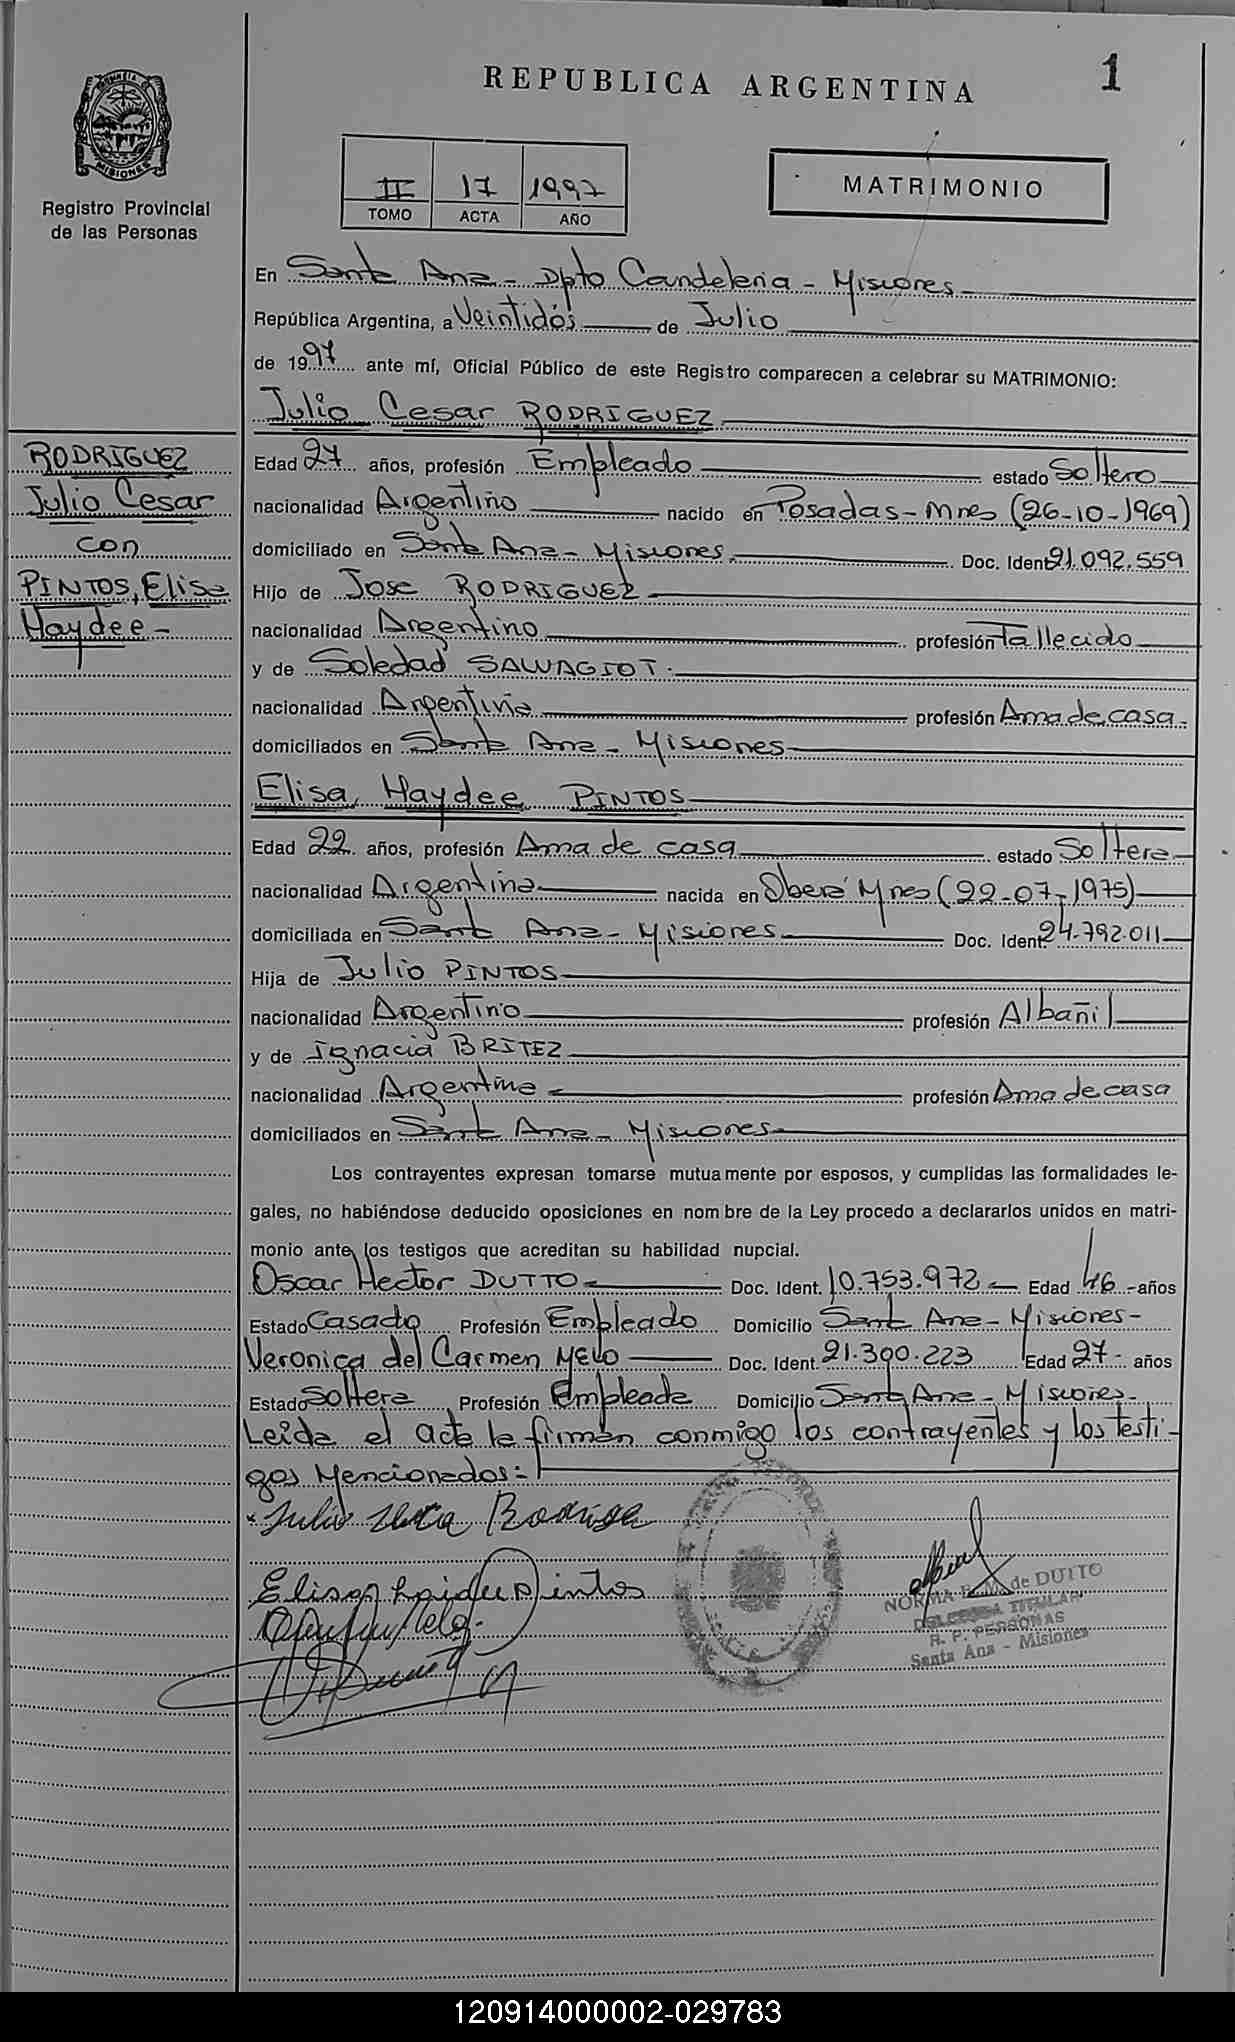 REPUBLICA ARGENTINA
1
MISIONES
Registro Provincial
de las Personas
II 17 1997
TOMO ACTA AÑO
MATRIMONIO
En Santa Ana - Dpto Candelaria - Misiones
República Argentina, a Veintidós de Julio
de 1997 ante mí, Oficial Público de este Registro comparecen a celebrar su MATRIMONIO:
Julio Cesar RODRIGUEZ
RODRIGUEZ
Julio Cesar
con
PINTOS, Elisa
Haydee -
Edad 27 años, profesión Empleado estado Soltero
nacionalidad Argentino nacido en Posadas - Mnes (26-10-1969)
domiciliado en Santa Ana - Misiones. Doc. Ident. 21.092.559
Hijo de Jose RODRIGUEZ
nacionalidad Argentino profesión Fallecido
y de Soledad SALVAGIOT.
nacionalidad Argentina profesión Ama de casa.
domiciliados en Santa Ana - Misiones
Elisa Haydee PINTOS
Edad 22 años, profesión Ama de casa estado Soltera
nacionalidad Argentina nacida en Oberá Mnes (22-07-1975)
domiciliada en Santa Ana - Misiones Doc. Ident. 24.792.011
Hija de Julio PINTOS
nacionalidad Argentino profesión Albañil
y de Ignacia BRITEZ
nacionalidad Argentina profesión Ama de casa
domiciliados en Santa Ana - Misiones
Los contrayentes expresan tomarse mutuamente por esposos, y cumplidas las formalidades le-
gales, no habiéndose deducido oposiciones en nombre de la Ley procedo a declararlos unidos en matri-
monio ante los testigos que acreditan su habilidad nupcial.
Oscar Hector DUTTO Doc. Ident. 10.753.972 Edad 46 -años
Estado Casado Profesión Empleado Domicilio Santa Ana - Misiones -
Veronica del Carmen MELO Doc. Ident. 21.300.223 Edad 27 - años
Estado Soltera Profesión Empleada Domicilio Santa Ana - Misiones -
Leida el acta la firman conmigo los contrayentes y los testi-
gos Mencionados:
Julio Rodrigue
Elisa Pintos
NORMA B. M. de DUTTO
DELEGADA TITULAR
R. P. PERSONAS
Santa Ana - Misiones
120914000002-029783